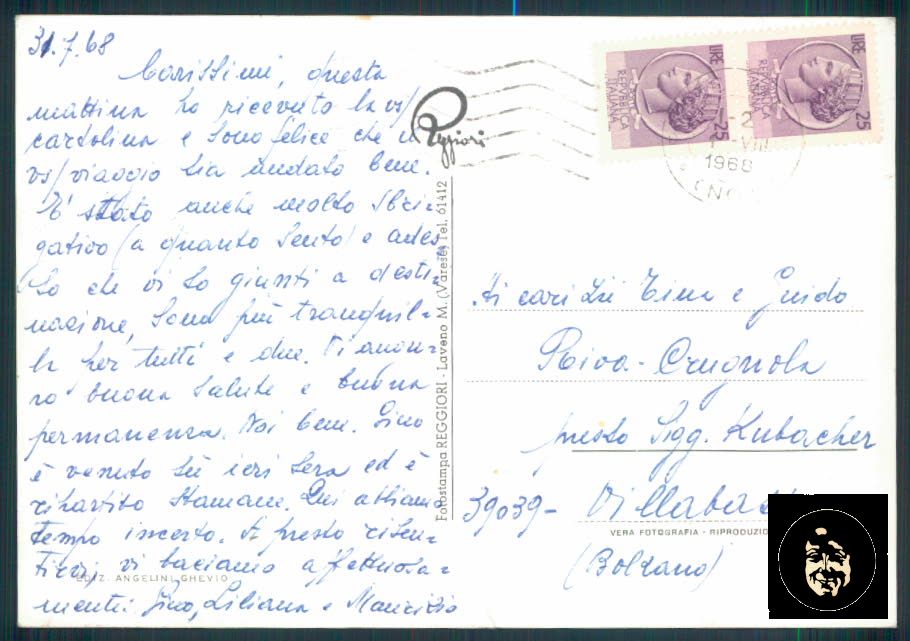 31.7.68
Carissimi, questa
mattina ho ricevuto la vs/
cartolina e sono felice che il
vs/ viaggio sia andato bene.
E' stato anche molto sbri-
gativo (a quanto sento) e ades-
so che vi so giunti a desti-
nazione, sono più tranquil-
la per tutti e due. Vi augu-
ro buona salute e buona
permanenza. Noi bene. Gino
è venuto su ieri sera ed è
ripartito stamane. Qui abbiamo
tempo incerto. A presto risen-
tirci, vi baciamo affettuosa-
mente: Gino, Liliana e Maurizio
EDIZ. ANGELINI GHEVIO
Reggiori
Fotostampa REGGIORI - Laveno M. (Varese) Tel. 61412
LIRE 25
REPVBBLICA ITALIANA
LIRE 25
REPVBBLICA ITALIANA
-2
VIII
1968
Ai cari Zii Tina e Guido
Riva - Crugnola
presso Sigg. Kubacher
39039 -
(Bolzano)
VERA FOTOGRAFIA - RIPRODUZIO